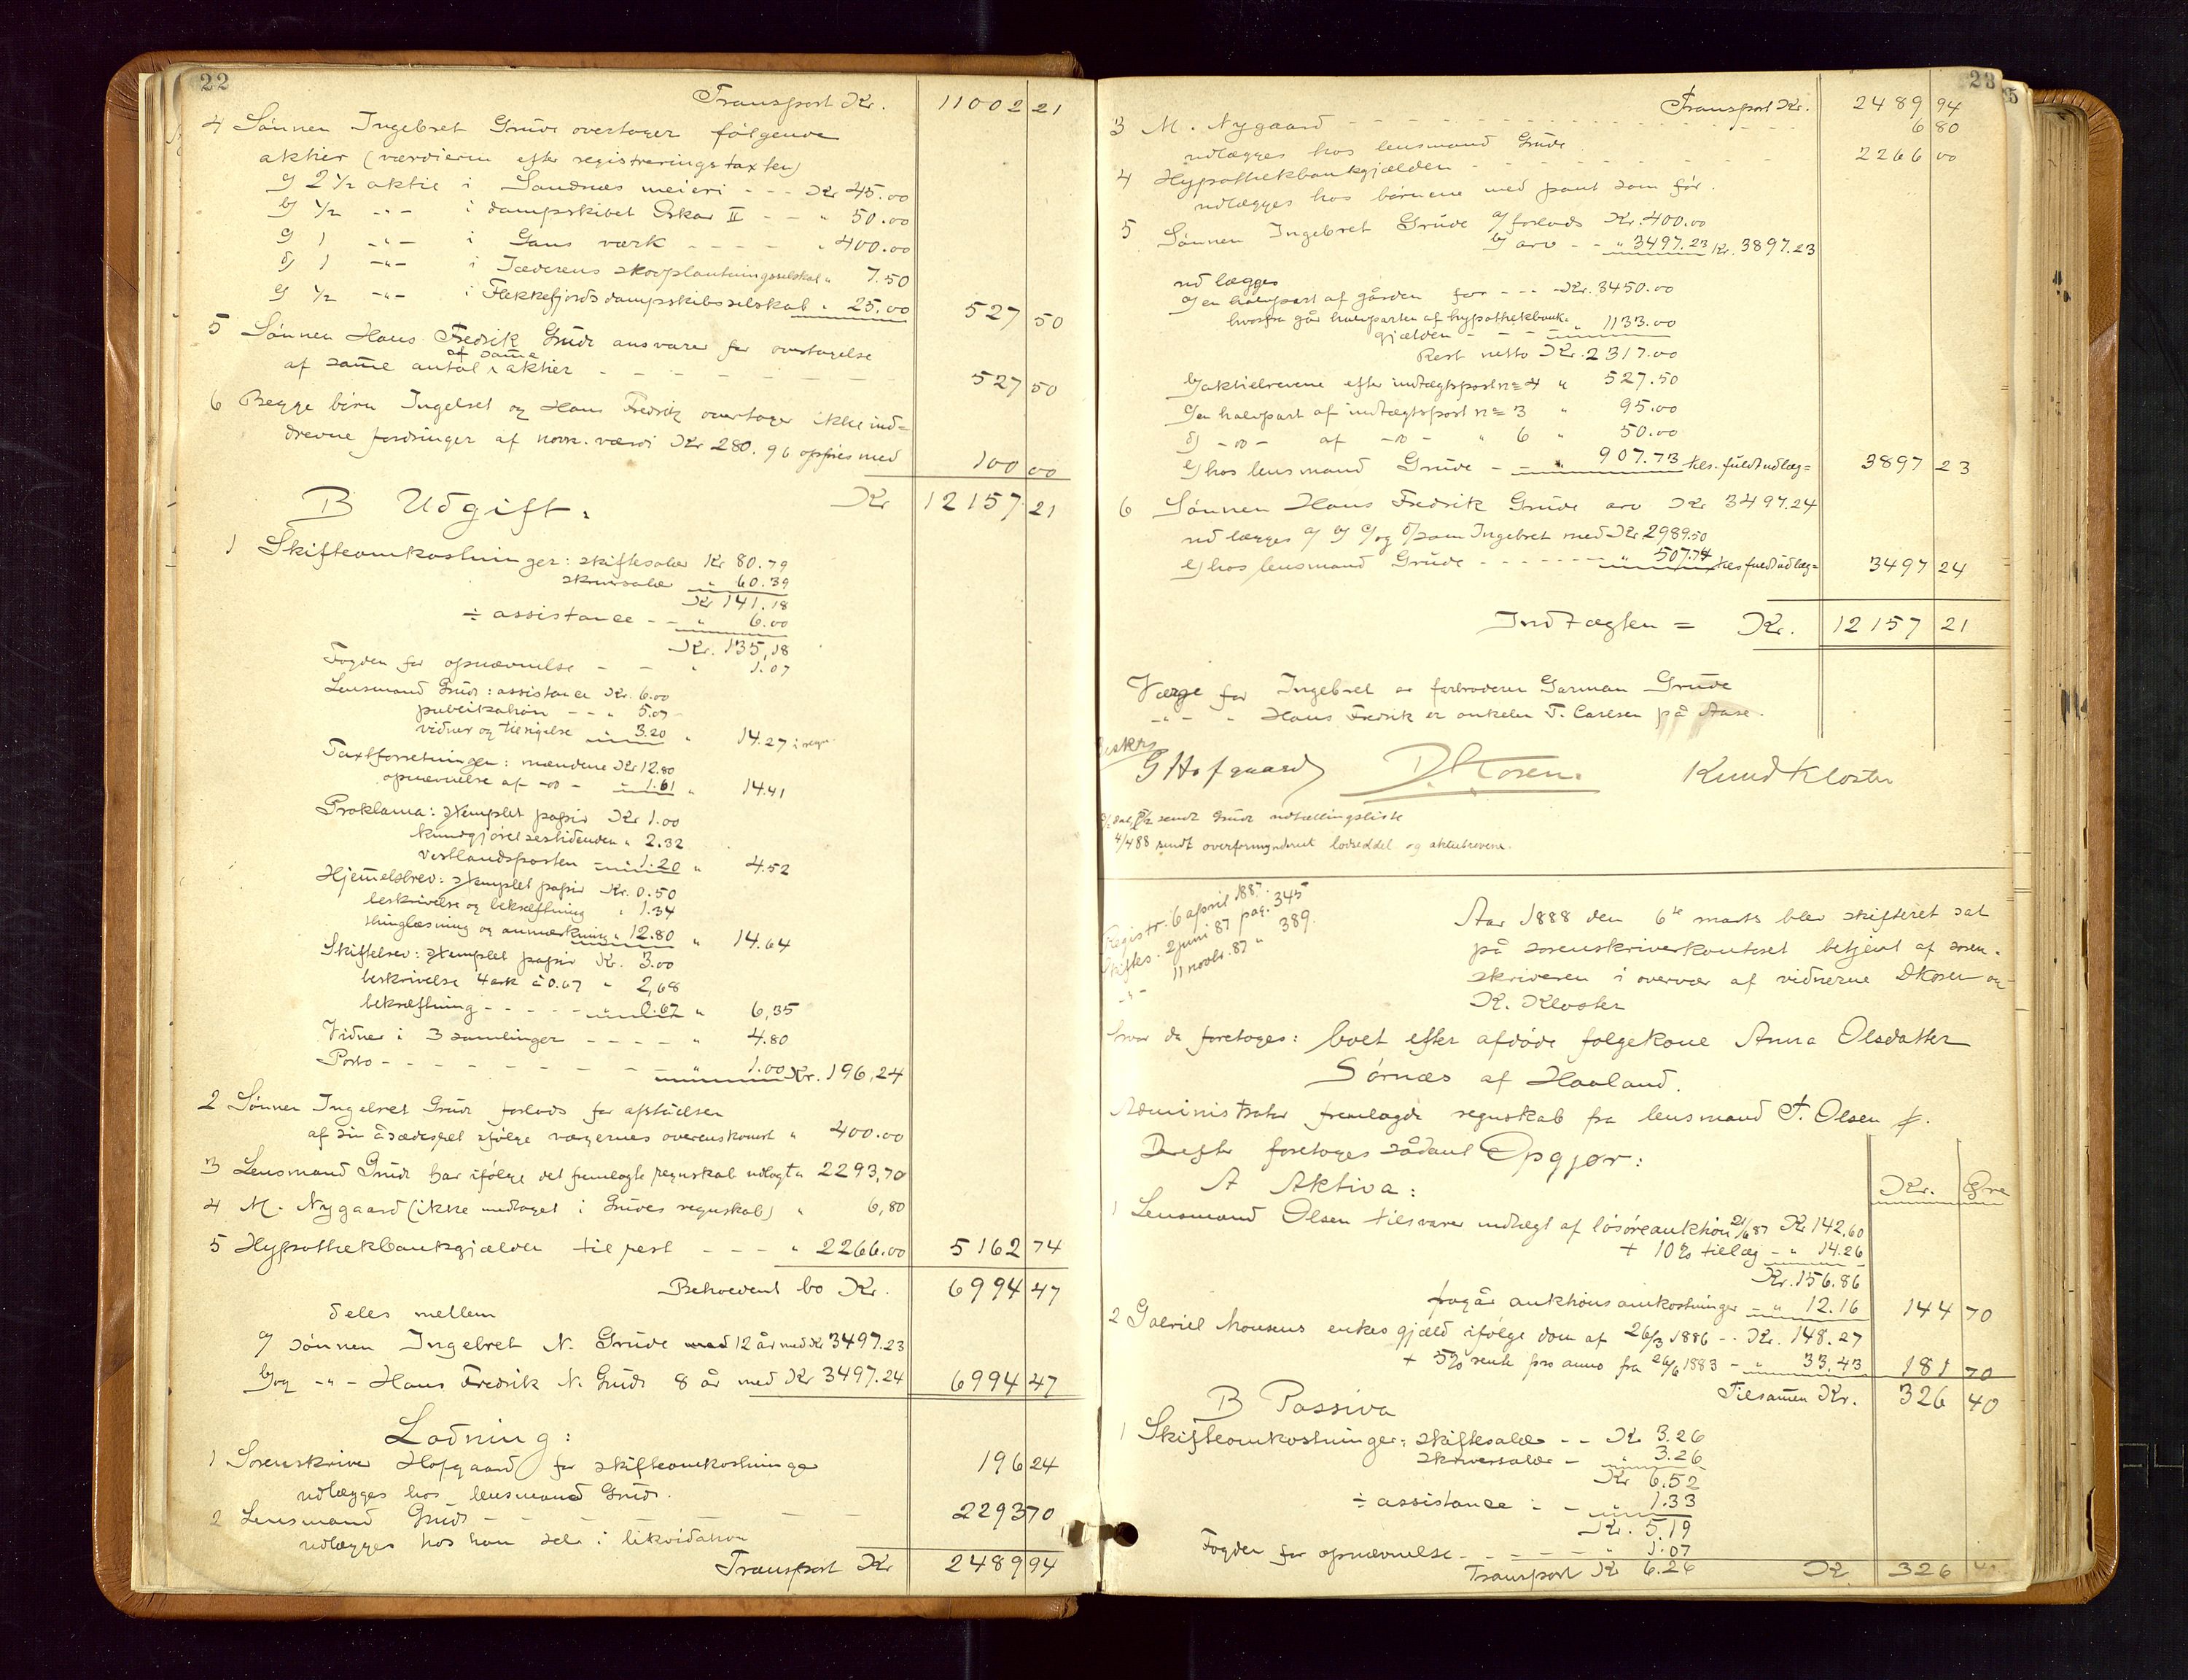 22
Transport Kr. 11002 21
4 Sönnen Ingebret Grude overtager følgende
aktier (værdieren efter registreringstaxten)
a) 2 1/2 aktie i Sandnæs meieri - - - Kr 45.00
b) 1/2 -"- i dampskibet Oskar II - - " 50.00
c) 1 -"- i Gans værk - - - - " 400.00
d) 1 -"- i Jæderens skovplantningsselskab " 7.50
e) 1/2 -"- i Flekkefjords dampskibsselskab " 25.00 527 50
5 Sönnen Hans Fredrik Grude ansvarer for overtagelse
af same antal af same aktier - - - - - - - 527 50
6 Begge börn Ingebret og Hans Fredrik overtager ikke ind=
drevne fordringer af nom. værdi Kr 280.96 opføres med 100 00
Kr 12157 21
B Udgift:
1 Skifteomkostninger: skiftesalær Kr 80.79
skriversalær " 60.39
Kr 141.18
÷ assistance - - " 6.00
Kr. 135,18
Fogden for opnævnelse - - " 1.07
Lensmand Grude: assistance Kr. 6.00
publikation - - " 5.07
vidner og tilsigelse " 3.20 " 14.27
Taxtforretningen: mændene Kr 12.80
opnævnelse af -do- " 1.61 " 14.41
Proklama: stemplet papir Kr 1.00
kundgjørelsestidenden " 2.32
vestlandsposten " 1.20 " 4.52
Hjemelsbrev: stemplet papir Kr. 0.50
beskrivelse og bekræftning " 1.34
thinglæsning og anmærkning " 12.80 " 14.64
Skiftebrev: stemplet papir Kr. 3.00
beskrivelse 4 ark à 0.67 " 2,68
bekræftning - - - - - " 0.67 " 6,35
Vidner i 3 samlinger - - - - " 4.80
Porto - - - - - - - - - " 1.00 Kr. 196,24
2 Sönnen Ingebret Grude forlods for afståelsen
af sin åsædesret ifølge værgernes overenskomst " 400.00
3 Lensmand Grude har ifølge det fremlagte regnskab udlagt " 2293,70
4 M. Nygaard (ikke medtaget i Grudes regnskab) " 6,80
5 Hypothekbankgjælden til rest - - - " 2266.00 5162 74
Beholdent bo Kr. 6994 47
deles mellem
a) sönnen Ingebret N. Grude 12 år med Kr 3497.23
b) og -"- Hans Fredrik N. Grude 8 år med Kr 3497.24 6994 47
Lodning:
1 Sorenskriver Hofgaard for skifteomkostninger 196 24
udlægges hos lensmand Grude.
2 Lensmand Grude - - - - - - - 2293 70
udlægges hos ham selv i likvidation
Transport Kr 2489 94
23
Transport Kr. 2489 94
3 M. Nygaard - - - - - - - - - - 6 80
udlægges hos lensmand Grude.
4 Hypothekbankgjælden - - - - - - - - 2266 00
udlægges hos börnene med pant som før.
5 Sönnen Ingebret Grude a) forlods Kr. 400.00
b) arv - - " 3497.23 Kr. 3897.23
udlægges
a) en halvpart af gården for - - - Kr. 3450.00
hvorfra går halvparten af hypothekbank-
gjælden - - - - " 1133.00
Rest netto Kr. 2317.00
b) aktiebrevene efter indtægtspost no 4 " 527.50
c) en halvpart af indtægtspost no 3 " 95.00
d) -do- af -do- " 6 " 50.00
e) hos lensmand Grude - - " 907.73 tils. fuldt udlæg= 3897 23
6 Sönnen Hans Fredrik Grude arv Kr 3497.24
udlægges a) b) c) og d) som Ingebret med Kr 2989.50
e) hos lensmand Grude - - - - - - " 507.74 tils fuldt udlæg= 3497 24
Indtægten = Kr. 12157 21
Værge for Ingebret er farbroderen Garman Grude
-"- " Hans Fredrik er onkelen T. Carlsen på Aase.
G Hofgaard DKosen. Knud Kloster
sendt Grude udtællingsliste
4/4 88 sendt overformynderiet lodseddel og aktiebrevene.
Registr. 6 april 188
Skiftes. 2 juni 87 pag. 345
-"- 11 novbr. 87 " 389.
Aar 1888 den 6te marts blev skifteret sat
på sorenskriverkontoret betjent af soren-
skriveren i overvær af vidnerne DKosen og
K. Kloster
hvor da foretoges: boet efter afdøde folgekone Anna Olsdatter
Sørnæs af Haaland.
Administrator fremlagde regnskab fra lensmand T. Olsen
Derefter foretoges sådant Opgjør:
A Aktiva: Kr. Øre
1 Lensmand Olsen tilsvarer indtægt af løsøreauktion 21/6 87 Kr 142,60
+ 10% tillæg - " 14.26
Kr. 156.86
fragår auktionsomkostninger - " 12.16 144 70
2 Gabriel Monsens enkes gjæld ifølge dom af 26/3 1886 - - Kr. 148.27
+ 5% rente pro anno fra 26/6 1883 - " 33.43 181 70
Tilsamen Kr. 326 40
B Passiva
1 Skifteomkostninger: skiftesalær - - Kr 3.26
skriversalær - " 3.26
Kr 6.52
÷ assistance - - " 1.33
Kr. 5.19
Fogden for opnævnelse - - - - - " 1.07
Transport Kr 6.26 Kr 326 40